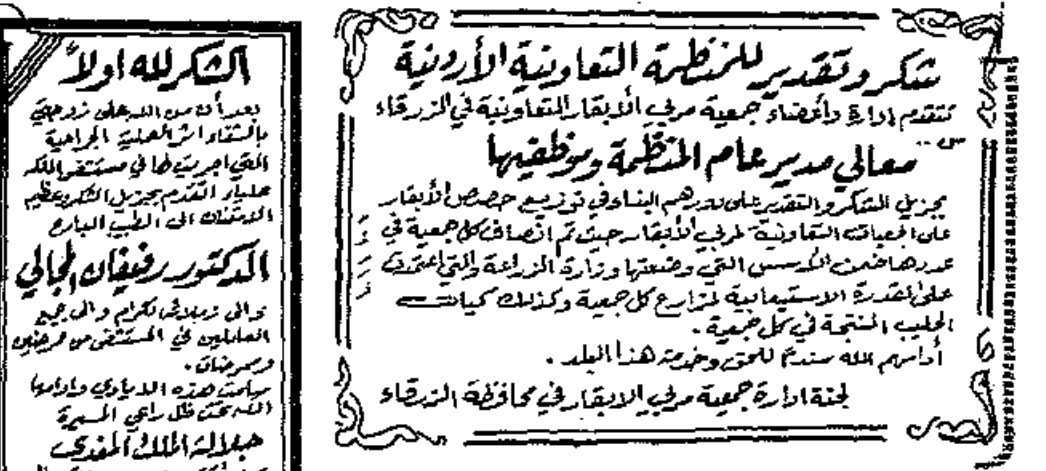 شكر وتقدير للمنظمة التعاونية الأردنية
تتقدم إدارة وأعضاء جمعية مربي الأبقار التعاونية في الزرقاء
من
معالي مدير عام المنظمة وموظفيها
بجزيل الشكر والتقدير على دورهم البناء وفي توزيع حصص الأبقار
على الجمعيات التعاونية لمربي الأبقار حيث تم انصاف كل جمعية في
عددها ضمن الأسس التي وضعتها وزارة الزراعة والتي اعتمدت
على القدرة الاستيعابية لمزارع كل جمعية وكذلك كميات
الحليب المنتجة في كل جمعية .
أدامهم الله سنداً للحق وخدمة هذا البلد .
لجنة ادارة جمعية مربي الابقار في محافظة الزرقاء
الشكر لله اولاً
بعد أن من الله على زوجتي
بالشفاء اثر العملية الجراحية
التي اجريت لها في مستشفى الملكه
علياء اتقدم بجزيل الشكر وعظيم
الامتنان الى الطبيب البارع
الدكتور رفيفان المجالي
والى زملائه الكرام والى جميع
العاملين في المستشفى من ممرضين
وممرضات .
سلمت هذه الايادي وادامها
الله تحت ظل راعي المسيرة
جلالة الملك المفدى